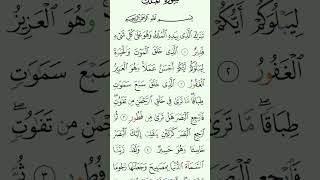 سُورَةُ الْمُلْكِ
بِسْمِ اللَّهِ الرَّحْمَٰنِ الرَّحِيمِ
تَبَٰرَكَ ٱلَّذِي بِيَدِهِ ٱلْمُلْكُ وَهُوَ عَلَىٰ كُلِّ شَيْءٍ
قَدِيرٌ ١ ٱلَّذِي خَلَقَ ٱلْمَوْتَ وَٱلْحَيَوٰةَ
لِيَبْلُوَكُمْ أَيُّكُمْ أَحْسَنُ عَمَلًا وَهُوَ ٱلْعَزِيزُ
ٱلْغَفُورُ ٢ ٱلَّذِي خَلَقَ سَبْعَ سَمَٰوَٰتٍ
طِبَاقًا مَّا تَرَىٰ فِي خَلْقِ ٱلرَّحْمَٰنِ مِن تَفَٰوُتٍ
فَٱرْجِعِ ٱلْبَصَرَ هَلْ تَرَىٰ مِن فُطُورٍ ٣ ثُمَّ
ٱرْجِعِ ٱلْبَصَرَ كَرَّتَيْنِ يَنقَلِبْ إِلَيْكَ ٱلْبَصَرُ
خَاسِئًا وَهُوَ حَسِيرٌ ٤ وَلَقَدْ زَيَّنَّا
ٱلسَّمَآءَ ٱلدُّنْيَا بِمَصَٰبِيحَ وَجَعَلْنَٰهَا رُجُومًا